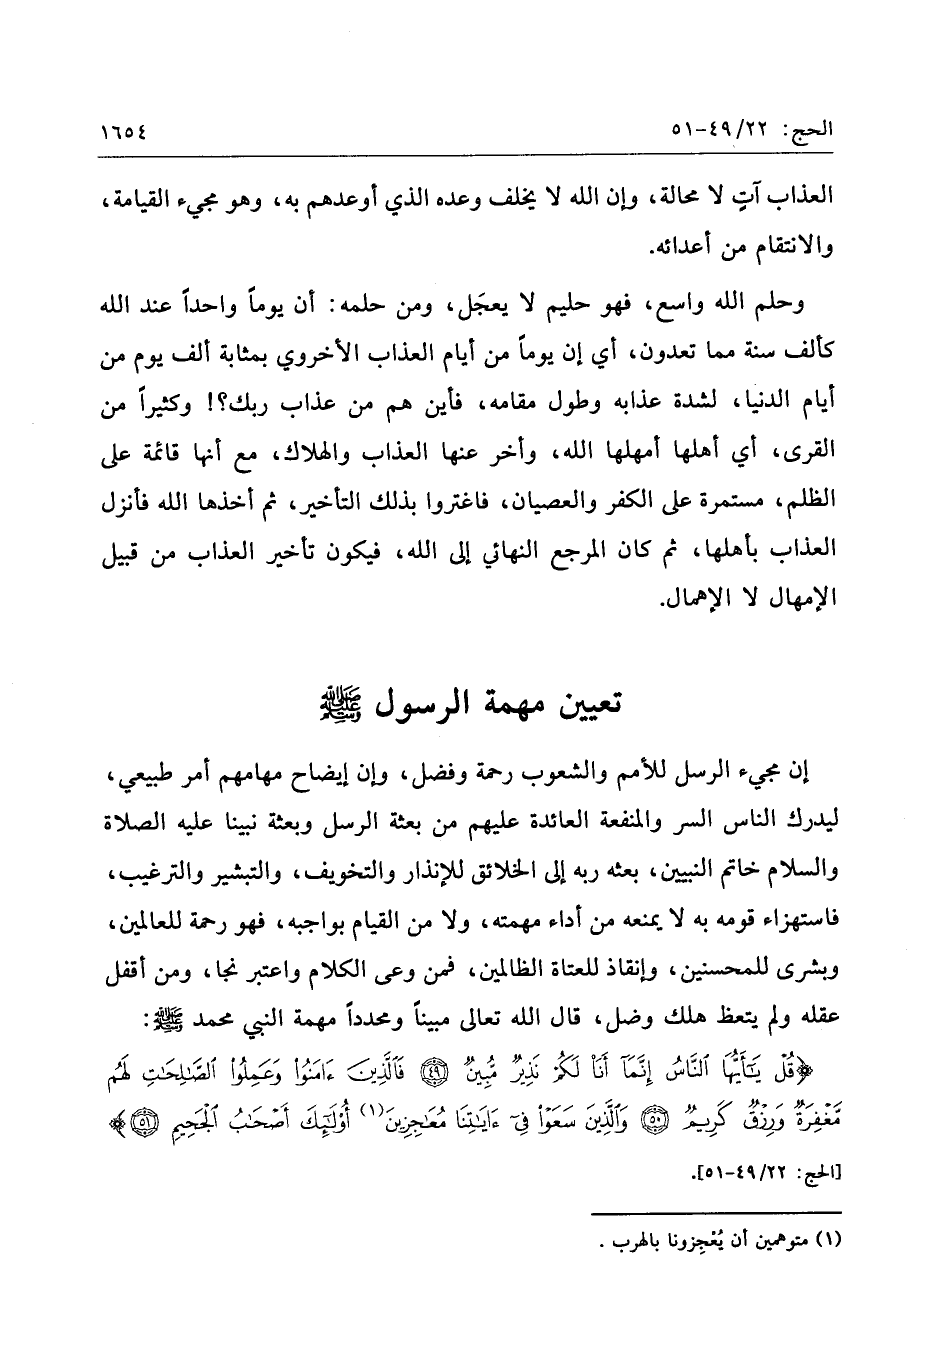 الحج: ٢٢/ ٤٩-٥١ ١٦٥٤
العذاب آتٍ لا محالة، وإن الله لا يخلف وعده الذي أوعدهم به، وهو مجيء القيامة،
والانتقام من أعدائه.
وحلم الله واسع، فهو حليم لا يعجَل، ومن حلمه: أن يوماً واحداً عند الله
كألف سنة مما تعدون، أي إن يوماً من أيام العذاب الأخروي بمثابة ألف يوم من
أيام الدنيا، لشدة عذابه وطول مقامه، فأين هم من عذاب ربك؟! وكثيراً من
القرى، أي أهلها أمهلها الله، وأخر عنها العذاب والهلاك، مع أنها قائمة على
الظلم، مستمرة على الكفر والعصيان، فاغتروا بذلك التأخير، ثم أخذها الله فأنزل
العذاب بأهلها، ثم كان المرجع النهائي إلى الله، فيكون تأخير العذاب من قبيل
الإمهال لا الإهمال.
تعيين مهمة الرسول ﷺ
إن مجيء الرسل للأمم والشعوب رحمة وفضل، وإن إيضاح مهامهم أمر طبيعي،
ليدرك الناس السر والمنفعة العائدة عليهم من بعثة الرسل وبعثة نبينا عليه الصلاة
والسلام خاتم النبيين، بعثه ربه إلى الخلائق للإنذار والتخويف، والتبشير والترغيب،
فاستهزاء قومه به لا يمنعه من أداء مهمته، ولا من القيام بواجبه، فهو رحمة للعالمين،
وبشرى للمحسنين، وإنقاذ للعتاة الظالمين، فمن وعى الكلام واعتبر نجا، ومن أقفل
عقله ولم يتعظ هلك وضل، قال الله تعالى مبيناً ومحدداً مهمة النبي محمد ﷺ:
﴿قُلْ يَٰٓأَيُّهَا ٱلنَّاسُ إِنَّمَآ أَنَا۠ لَكُمْ نَذِيرٌ مُّبِينٌ ٤٩ فَٱلَّذِينَ ءَامَنُوا۟ وَعَمِلُوا۟ ٱلصَّٰلِحَٰتِ لَهُم
مَّغْفِرَةٌ وَرِزْقٌ كَرِيمٌ ٥٠ وَٱلَّذِينَ سَعَوْا۟ فِىٓ ءَايَٰتِنَا مُعَٰجِزِينَ(١) أُو۟لَٰٓئِكَ أَصْحَٰبُ ٱلْجَحِيمِ ٥١﴾
[الحج: ٢٢/ ٤٩-٥١].
(١) متوهمين أن يُعْجِزونا بالهرب .